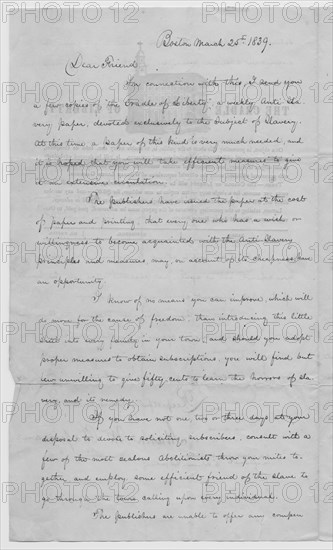 Boston March 25th 1839.
Dear Friend
In connection with this, I send you
a few copies of the "Cradle of Liberty" a weekly Anti Sla-
very paper, devoted exclusively to the subject of Slavery.
At this time a paper of this kind is very much needed, and
it is hoped that you will take efficient measures to give
it an extensive circulation.
The publishers have issued the paper at the cost
of paper and printing, that every one who has a wish or
willingness to become acquainted with the Anti Slavery
principles and measures may, on account of its cheapness, have
an opportunity.
I know of no means you can improve, which will
do more for the cause of freedom, than introducing this little
sheet into every family in your town, and should you adopt
proper measures to obtain subscriptions, you will find but
few unwilling to give fifty cents to learn the horrors of sla-
very, and its remedy.
If you have not one two or three days at your
disposal to devote to soliciting subscribers, consult with a
few of the most zealous Abolitionists, throw your mites to-
gether and employ some efficient friend of the slave to
go through the town calling upon every individual.
The publishers are unable to offer any compen